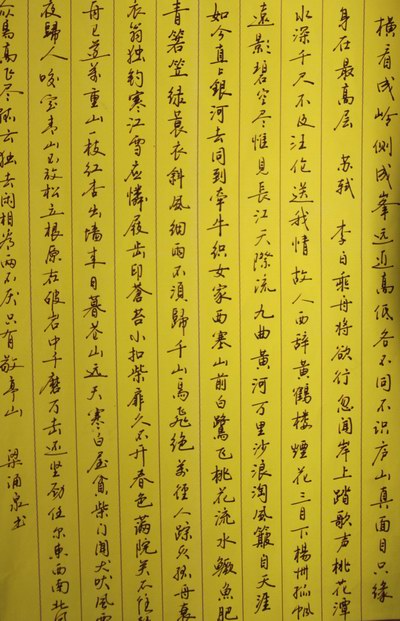 横看成岭侧成峯远近高低各不同不识庐山真面目只缘
身在最高层 苏轼 李白乘舟将欲行忽闻岸上踏歌声桃花潭
水深千尺不及汪伦送我情 故人西辞黄鹤楼烟花三月下楊州孤帆
遠影碧空尽惟見長江天際流九曲黄河万里沙浪淘风簸自天涯
如今直上銀河去同到牵牛织女家西塞山前白鹭飞桃花流水鳜魚肥
青箬笠绿蓑衣斜風细雨不須歸千山鸟飛绝万径人踪灭孤舟蓑
衣翁独钓寒江雪应憐屐齿印蒼苔小扣柴扉久不开春色满院关不住
舟已过万重山一枝红杏出墙来日暮苍山远天寒白屋貧柴门闻犬吠风雪
夜歸人 咬定青山不放松立根原在破岩中千磨万击还坚劲任尔東西南北风
众鳥高飞尽孤云独去闲相看两不厌只有敬亭山 梁涌泉书